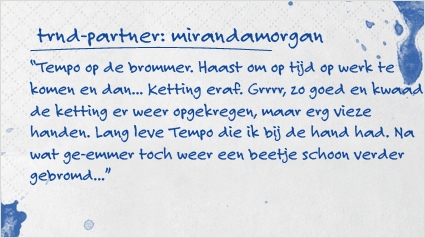 trnd-partner: mirandamorgan
"Tempo op de brommer. Haast om op tijd op werk te
komen en dan... Ketting eraf. Grrrr, zo goed en kwaad
de ketting er weer opgekregen, maar erg vieze
handen. Lang leve Tempo die ik bij de hand had. Na
wat ge-emmer toch weer een beetje schoon verder
gebromd..."